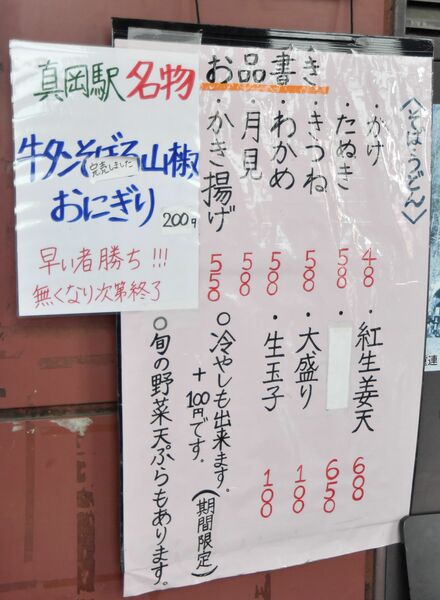 真岡駅名物
牛タンそぼろ山椒
完売しました
おにぎり 200円
早い者勝ち!!!
無くなり次第終了
お品書き
〈そば・うどん〉
・かけ 400
・たぬき 500
・きつね 500
・わかめ 500
・月見 500
・かき揚げ 550
・紅生姜天 600
・ 650
・大盛り 100
・生玉子 100
○冷やしも出来ます。
+100円です。(期間限定)
○旬の野菜天ぷらもあります。